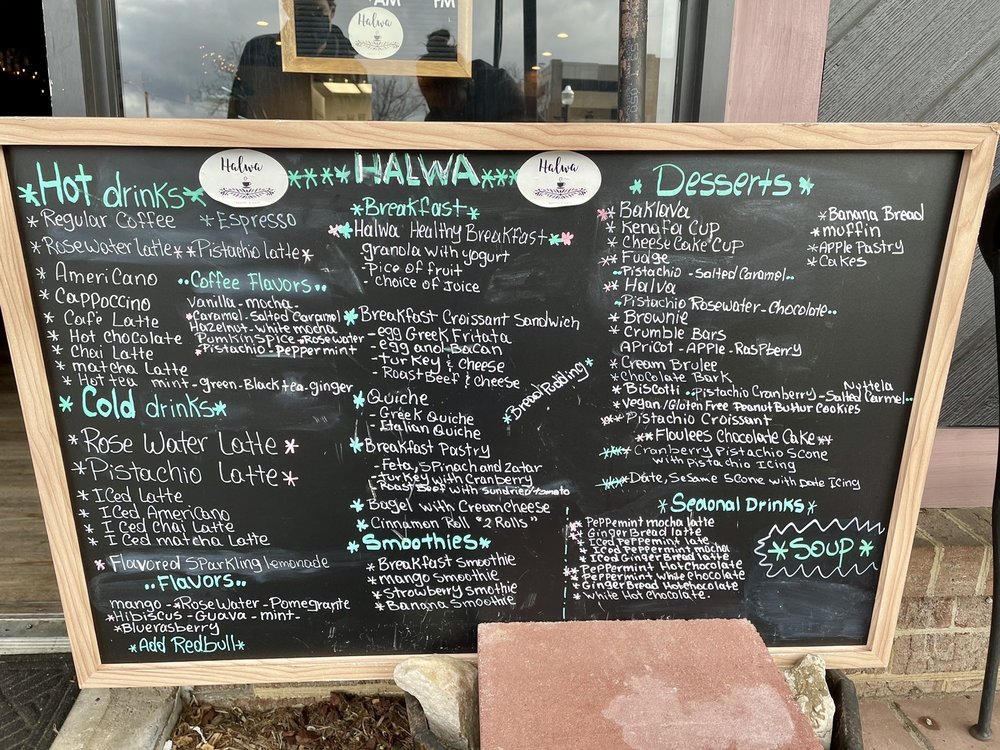 AM PM
Halwa
Halwa
* * * * HALWA * * * *
Halwa
*Hot drinks*
*Regular Coffee *Espresso
*Rosewater Latte* *Pistachio latte*
*Americano
*Cappoccino
*Café Latte
*Hot chocolate
*Chai Latte
*matcha Latte
*Hot tea mint-green-Black tea-ginger
..Coffee Flavors..
Vanilla-mocha-
*Caramel-Salted Caramel
Hazelnut-white mocha
Pumkin Spice-Rosewater
*Pistachio-Peppermint
*Cold drinks*
*Rose Water Latte*
*Pistachio Latte*
*Iced Latte
*Iced Americano
*Iced Chai Latte
*Iced matcha Latte
*Flavored Sparkling lemonade
..Flavors..
mango-*RoseWater-Pomegranite
*Hibiscus-Guava-mint-
*Bluerasberry
*Add Redbull*
*Breakfast*
*Halwa Healthy Breakfast**
granola with yogurt
-Pice of fruit
-choice of Joice
*Breakfast Croissant Sandwich
-egg Greek Fritata
-egg and Bacan
-turkey & cheese
-Roast Beef & cheese
*Bread Pudding*
*Quiche
-Greek Quiche
-Italian Quiche
*Breakfast Pastry
-Feta, Spinach and Zatar
-turkey with Cranberry
-Roast Beef with sundried tomato
*Bagel with Creamcheese
*Cinnamon Roll "2 Rolls"
*Smoothies*
*Breakfast smoothie
*mango smoothie
*Strowberry smothie
*Banana Smoothie
*Desserts*
*Baklava
*Kenafa Cup
*Cheese Cake Cup
*Fudge
..Pistachio-Salted Caramel..
*Halva
..Pistachio Rosewater-Chocolate..
*Brownie
*Crumble Bars
Apricot-Apple-Raspberry
*Cream Brulee
*Chocolate Bark
*Biscotti ..Pistachio Cranberry-Salted Carmel..
Nuttela
*Vegan/Gluten Free Peanut Buttur Cookies
**Pistachio Croissant
**Floulees Chocolate Cake**
***Cranberry Pistachio Scone
with Pistachio Icing
***Date, Sesame Scone with Date Icing
*Banana Bread
*muffin
*Apple Pastry
*Cakes
*Seaonal Drinks*
*Peppermint mocha latte
*GingerBread latte
*Iced Peppermint late
*Iced Peppermint mocha
*Iced GingerBread latte
*Peppermint Hot chocolate
*Peppermint white chocolate
*GingerBread Hotchocolate
*White Hot Chocolate.
*Soup*